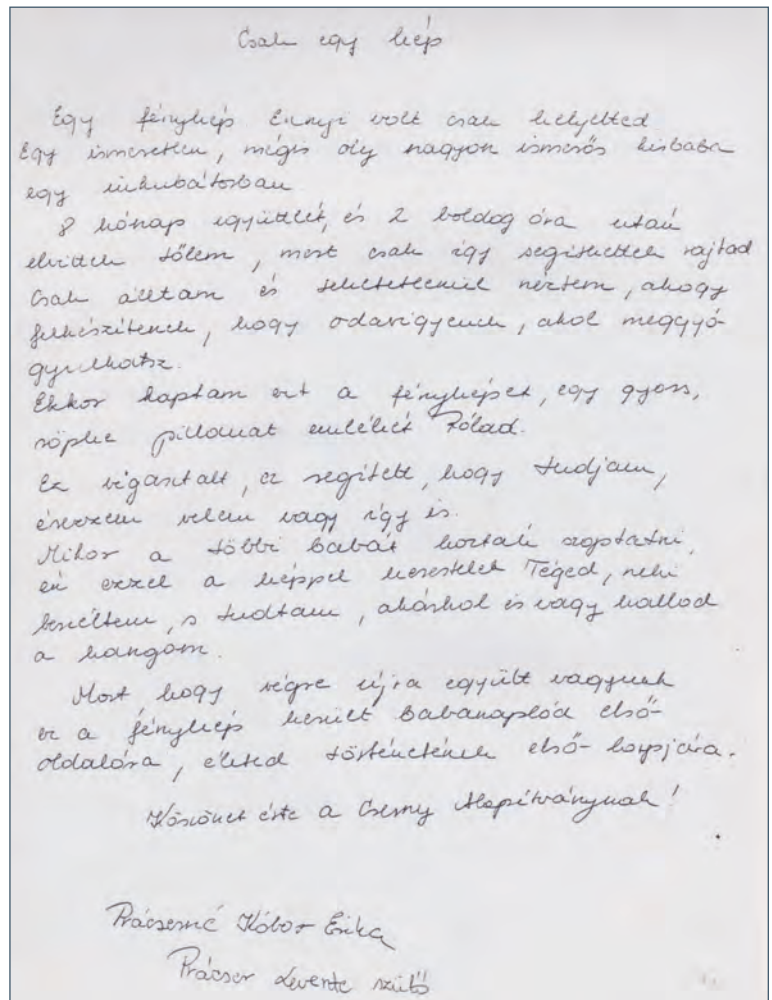 Csak egy kép
Egy fénykép Ennyi volt csak helyetted
Egy ismeretlen, mégis oly nagyon ismerős kisbaba
egy inkubátorban
8 hónap együttlét, és 2 boldog óra után
elvittek tőlem, mert csak így segíthettek rajtad
Csak álltam és tehetetlenül néztem, ahogy
felkészítenek, hogy odavigyenek, ahol meggyó-
gyulhatsz.
Ekkor kaptam ezt a fényképet, egy gyors,
röpke pillanat emlékét Rólad.
Ez vigasztalt, ez segített, hogy tudjam,
érezzem velem vagy így is.
Mikor a többi babát hozták szoptatni,
én ezzel a képpel kerestelek Téged, neki
beszéltem, s tudtam, akárhol is vagy hallod
a hangom.
Most, hogy végre újra együtt vagyunk
ez a fénykép került Babanaplód első-
oldalára, életed történetének első- lapjára.
Köszönet érte a Cserny Alapítványnak!
Prácserné Kóbor Erika
Prácser Levente szülő